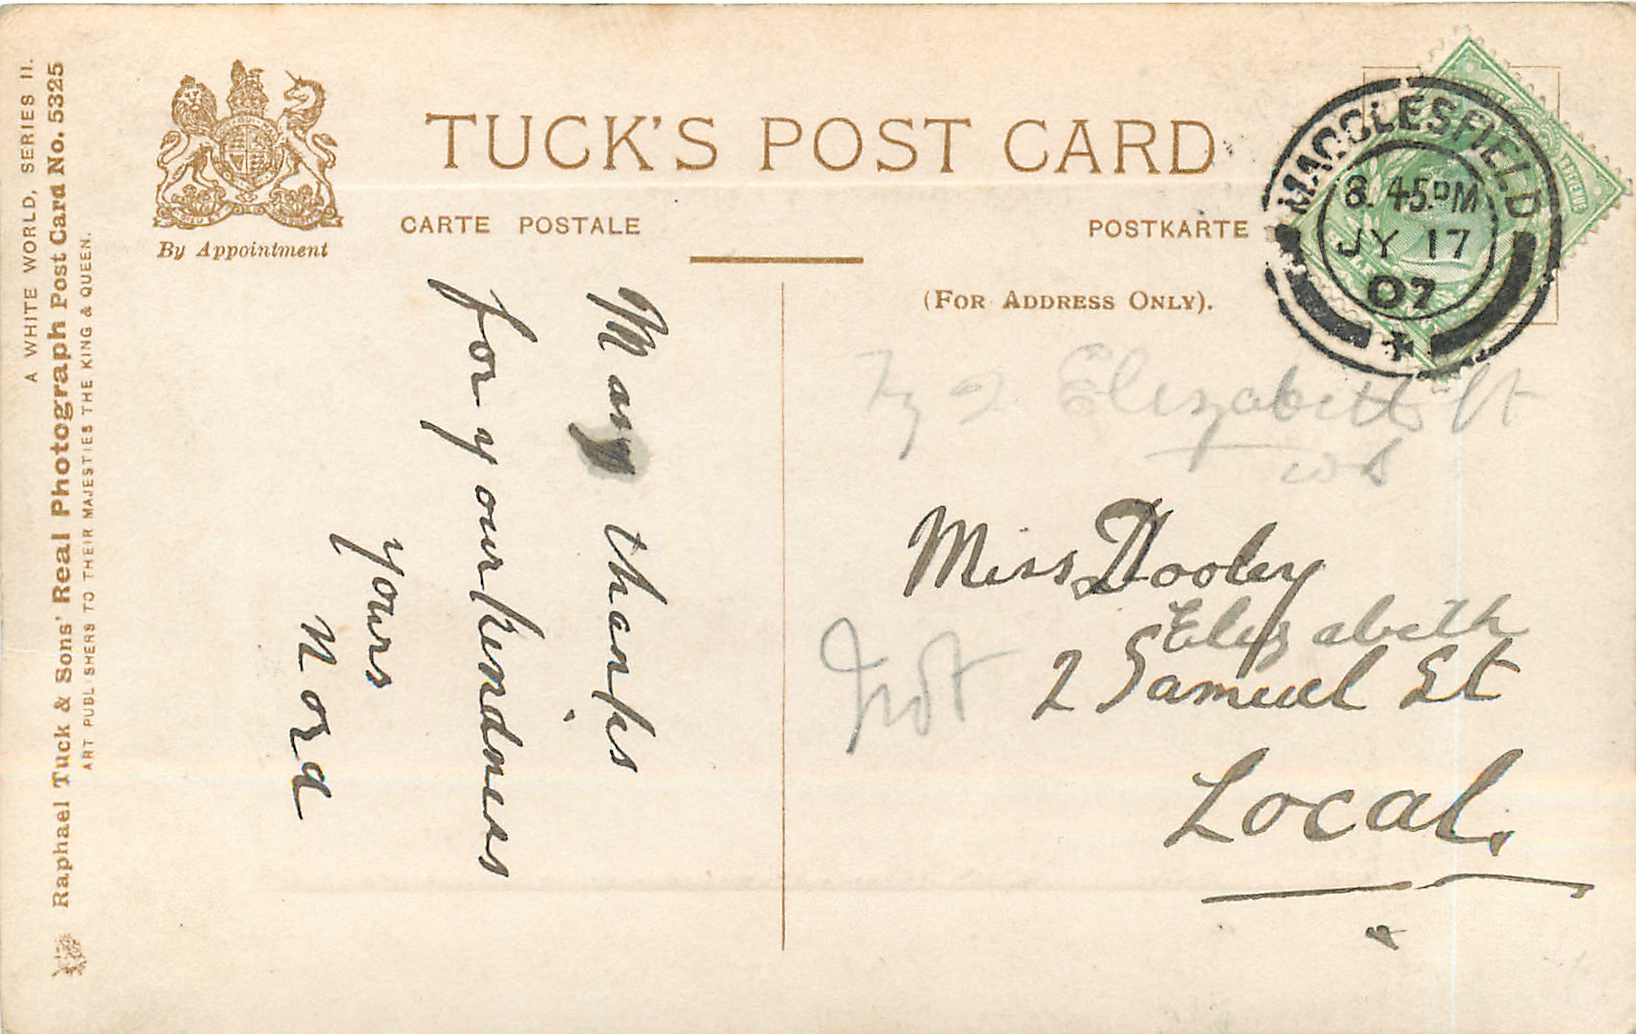 A WHITE WORLD, SERIES II.
Raphael Tuck & Sons' Real Photograph Post Card No. 5325
ART PUBLISHERS TO THEIR MAJESTIES THE KING & QUEEN.
By Appointment
TUCK'S POST CARD
CARTE POSTALE
POSTKARTE
(FOR ADDRESS ONLY).
MACCLESFIELD
8.45PM
JY 17
07
Many thanks
for your kindness
yours
Nora
Try 2 Elizabeth St
Miss Dooley
Elizabeth
2 Samuel St
Not
Local.